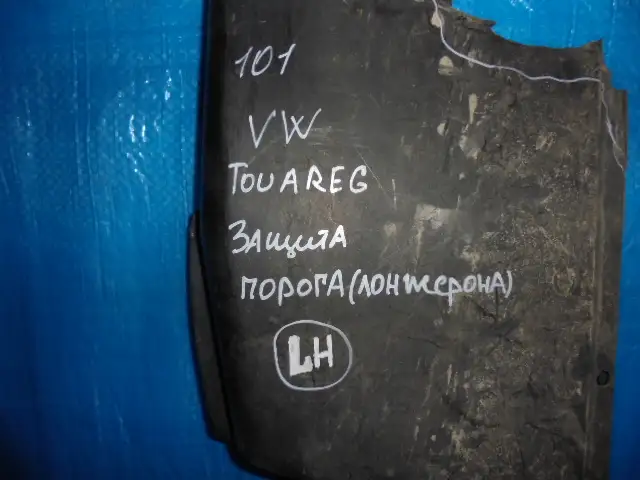 101
VW
TOUAREG
ЗАЩИТА
ПОРОГА(ЛОНЖЕРОНА)
LH